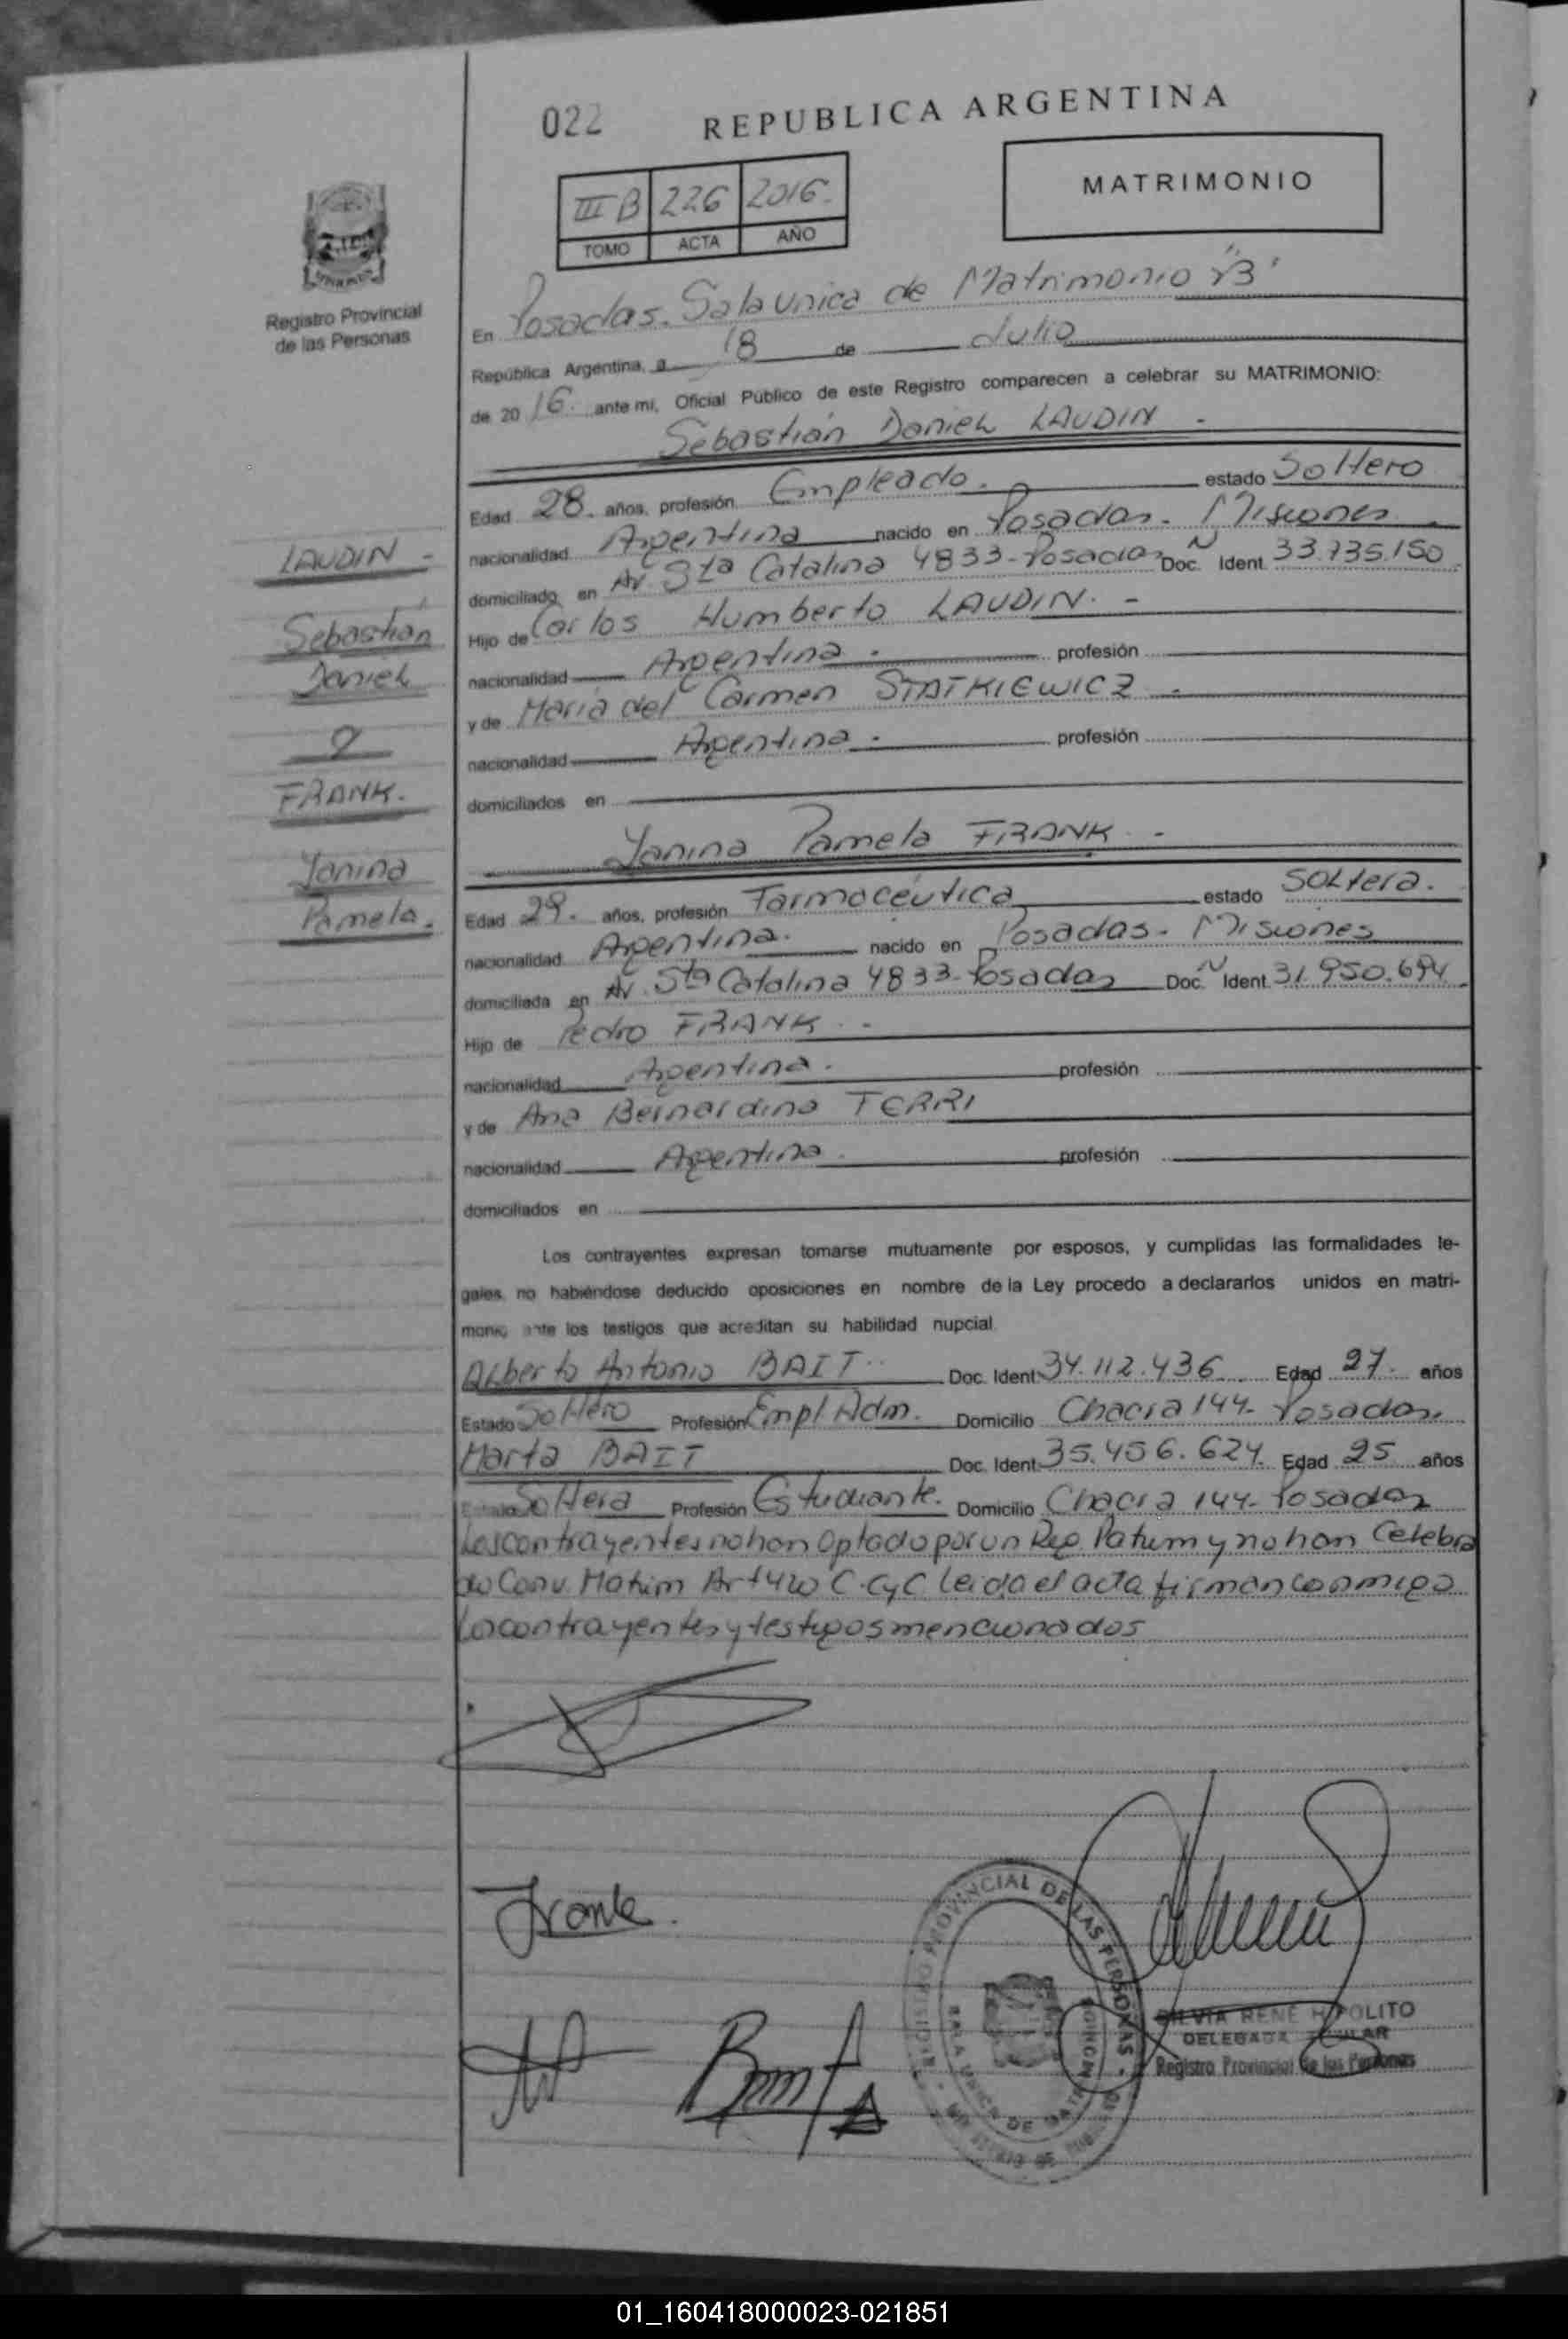 022
REPUBLICA ARGENTINA
III B 226 2016.
TOMO ACTA AÑO
MATRIMONIO
Registro Provincial
de las Personas
En Posadas. Sala Unica de Matrimonio "B"
República Argentina, a 18 de Julio
de 20 16. ante mi, Oficial Público de este Registro comparecen a celebrar su MATRIMONIO:
Sebastián Daniel LAUDIN -
Edad 28. años, profesión Empleado. estado Soltero
nacionalidad Argentina nacido en Posadas. Misiones.
domiciliado en Av. Sta Catalina 4833-Posadas Doc. N Ident. 33.735.150
Hijo de Carlos Humberto LAUDIN. -
nacionalidad Argentina. profesión
y de María del Carmen STATKIEWICZ -
nacionalidad Argentina. profesión
domiciliados en
Yanina Pamela FRANK -
Edad 29. años, profesión Farmacéutica estado Soltera.
nacionalidad Argentina. nacido en Posadas. Misiones
domiciliada en Av. Sta Catalina 4833-Posadas Doc. N Ident. 31.950.694
Hijo de Pedro FRANK. -
nacionalidad Argentina. profesión
y de Ana Bernardina TERRI
nacionalidad Argentina. profesión
domiciliados en
LAUDIN -
Sebastián
Daniel
FRANK.
Yanina
Pamela.
Los contrayentes expresan tomarse mutuamente por esposos, y cumplidas las formalidades le-
gales, no habiéndose deducido oposiciones en nombre de la Ley procedo a declararlos unidos en matri-
monio ante los testigos que acreditan su habilidad nupcial
Alberto Antonio BAIT.. Doc. Ident. 34.112.436 Edad 27. años
Estado Soltero Profesión Empl Adm. Domicilio Chacra 144- Posadas.
Marta BAIT Doc. Ident. 35.456.624. Edad 25 años
Estado Soltera Profesión Estudiante. Domicilio Chacra 144- Posadas
Los contrayentes no han Optado por un Reg. Patrim y no han Celebra
do Conv. Matrim Art 420 C.CyC leida el acta firman conmigo
Los contrayentes y testigos mencionados
Frank.
REGISTRO PROVINCIAL DE LAS PERSONAS
SALA UNICA DE
SILVIA RENE HIPOLITO
DELEGADA TITULAR
Registro Provincial de las Personas
01_160418000023-021851